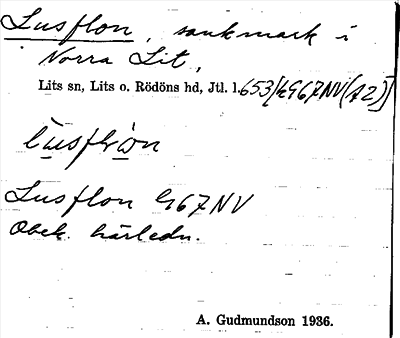 Lusflon, sankmark i
Norra Lit,
Lits sn, Lits o. Rödöns hd, Jtl. l.
Lusflon G67NV
Obek. härledn.
A. Gudmundson 1936.